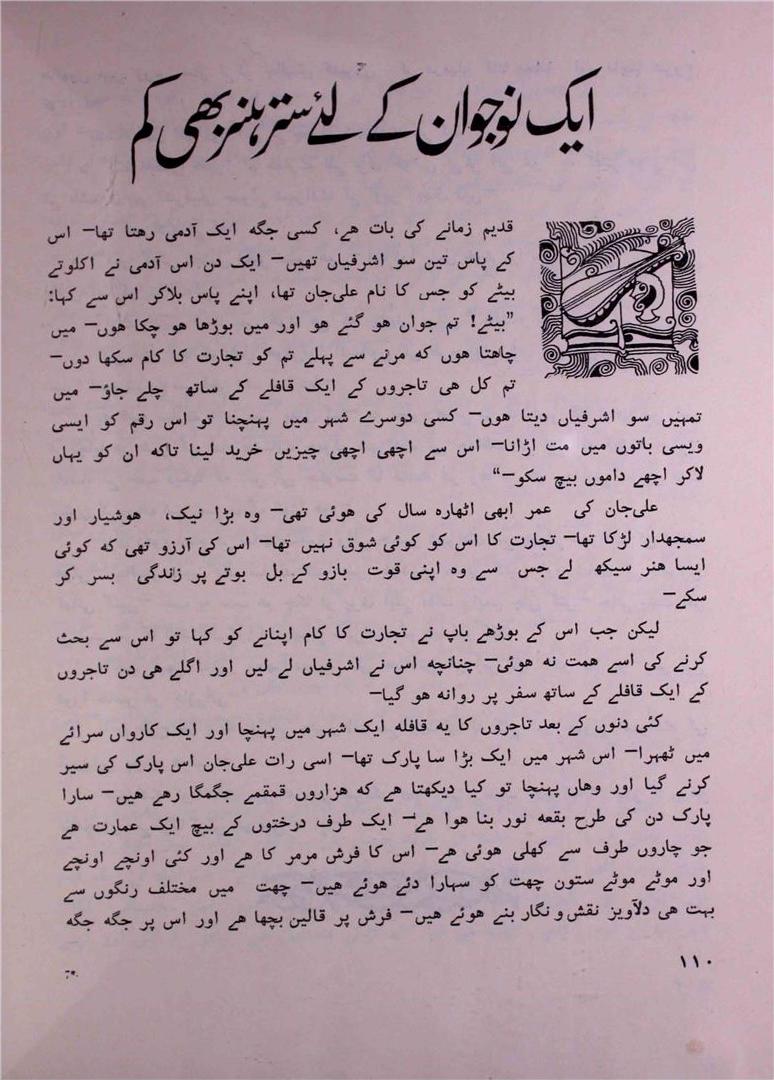 ایک نوجوان کے لئے ستر ہنر بھی کم
قدیم زمانے کی بات ہے، کسی جگہ ایک آدمی رہتا تھا— اس
کے پاس تین سو اشرفیاں تھیں— ایک دن اس آدمی نے اکلوتے
بیٹے کو جس کا نام علی‌جان تھا، اپنے پاس بلاکر اس سے کہا:
”بیٹے! تم جوان ہو گئے ہو اور میں بوڑھا ہو چکا ہوں— میں
چاہتا ہوں کہ مرنے سے پہلے تم کو تجارت کا کام سکھا دوں—
تم کل ہی تاجروں کے ایک قافلے کے ساتھ چلے جاؤ— میں
تمہیں سو اشرفیاں دیتا ہوں— کسی دوسرے شہر میں پہنچنا تو اس رقم کو ایسی
ویسی باتوں میں مت اڑانا— اس سے اچھی اچھی چیزیں خرید لینا تاکہ ان کو یہاں
لاکر اچھے داموں بیچ سکو—“
علی‌جان کی عمر ابھی اٹھارہ سال کی ہوئی تھی— وہ بڑا نیک، ہوشیار اور
سمجھدار لڑکا تھا— تجارت کا اس کو کوئی شوق نہیں تھا— اس کی آرزو تھی کہ کوئی
ایسا ہنر سیکھ لے جس سے وہ اپنی قوت بازو کے بل بوتے پر زندگی بسر کر
سکے—
لیکن جب اس کے بوڑھے باپ نے تجارت کا کام اپنانے کو کہا تو اس سے بحث
کرنے کی اسے ہمت نہ ہوئی— چنانچہ اس نے اشرفیاں لے لیں اور اگلے ہی دن تاجروں
کے ایک قافلے کے ساتھ سفر پر روانہ ہو گیا—
کئی دنوں کے بعد تاجروں کا یہ قافلہ ایک شہر میں پہنچا اور ایک کارواں سرائے
میں ٹھہرا— اس شہر میں ایک بڑا سا پارک تھا— اسی رات علی‌جان اس پارک کی سیر
کرنے گیا اور وہاں پہنچا تو کیا دیکھتا ہے کہ ہزاروں قمقمے جگمگا رہے ہیں— سارا
پارک دن کی طرح بقعہ نور بنا ہوا ہے— ایک طرف درختوں کے بیچ ایک عمارت ہے
جو چاروں طرف سے کھلی ہوئی ہے— اس کا فرش مرمر کا ہے اور کئی اونچے اونچے
اور موٹے موٹے ستون چھت کو سہارا دئے ہوئے ہیں— چھت میں مختلف رنگوں سے
بہت ہی دلآویز نقش و نگار بنے ہوئے ہیں— فرش پر قالین بچھا ہے اور اس پر جگہ جگہ
۱۱۰